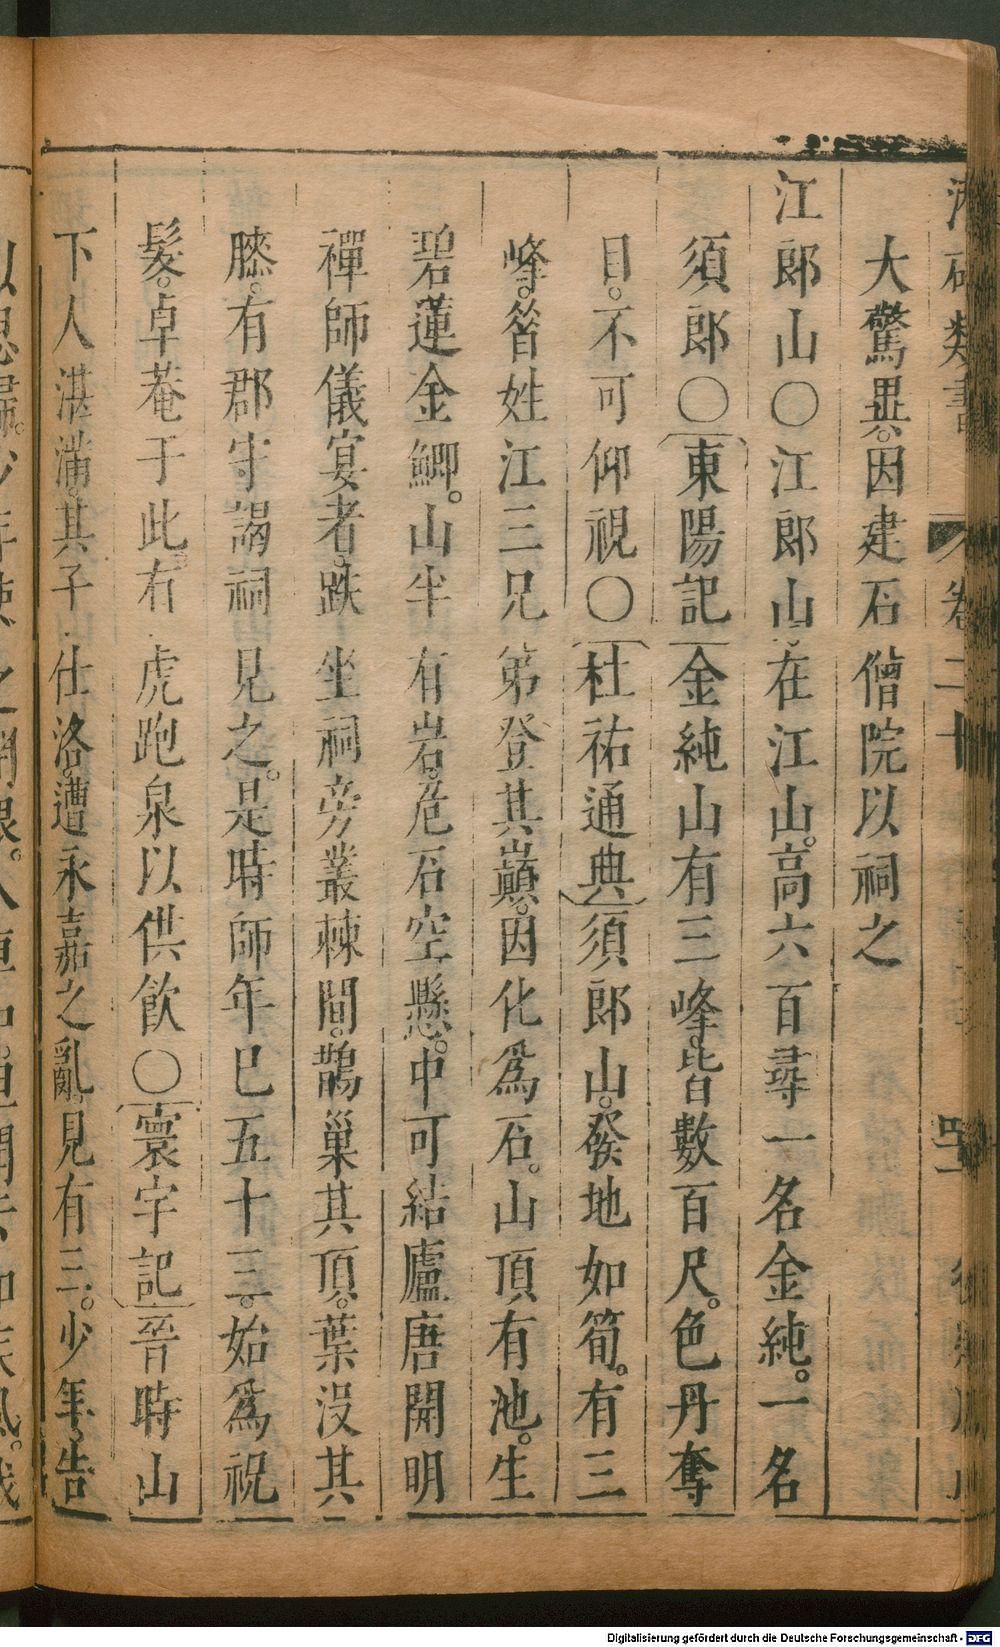 類書 卷二十
大驚異。因建石僧院以祠之
江郎山○江郎山。在江山。高六百尋一名金純。一名
須郎○東陽記金純山有三峰。皆數百尺。色丹奪
目。不可仰視○杜祐通典須郎山。發地如筍。有三
峰。昝姓江三兄弟登其巔。因化爲石。山頂有池。生
碧蓮金鯽。山半有岩。危石空懸。中可結廬唐開明
禪師儀宴者。趺坐祠旁叢棘間。鵲巢其頂。葉沒其
膝。有郡守謁祠見之。是時師年巳五十三。始爲祝
髮。卓菴于此。有虎跑泉以供飲○寰宇記晉時山
下人湛滿。其子仕洛。遭永嘉之亂。見有三少年。告
Digitalisierung gefördert durch die Deutsche Forschungsgemeinschaft - DFG